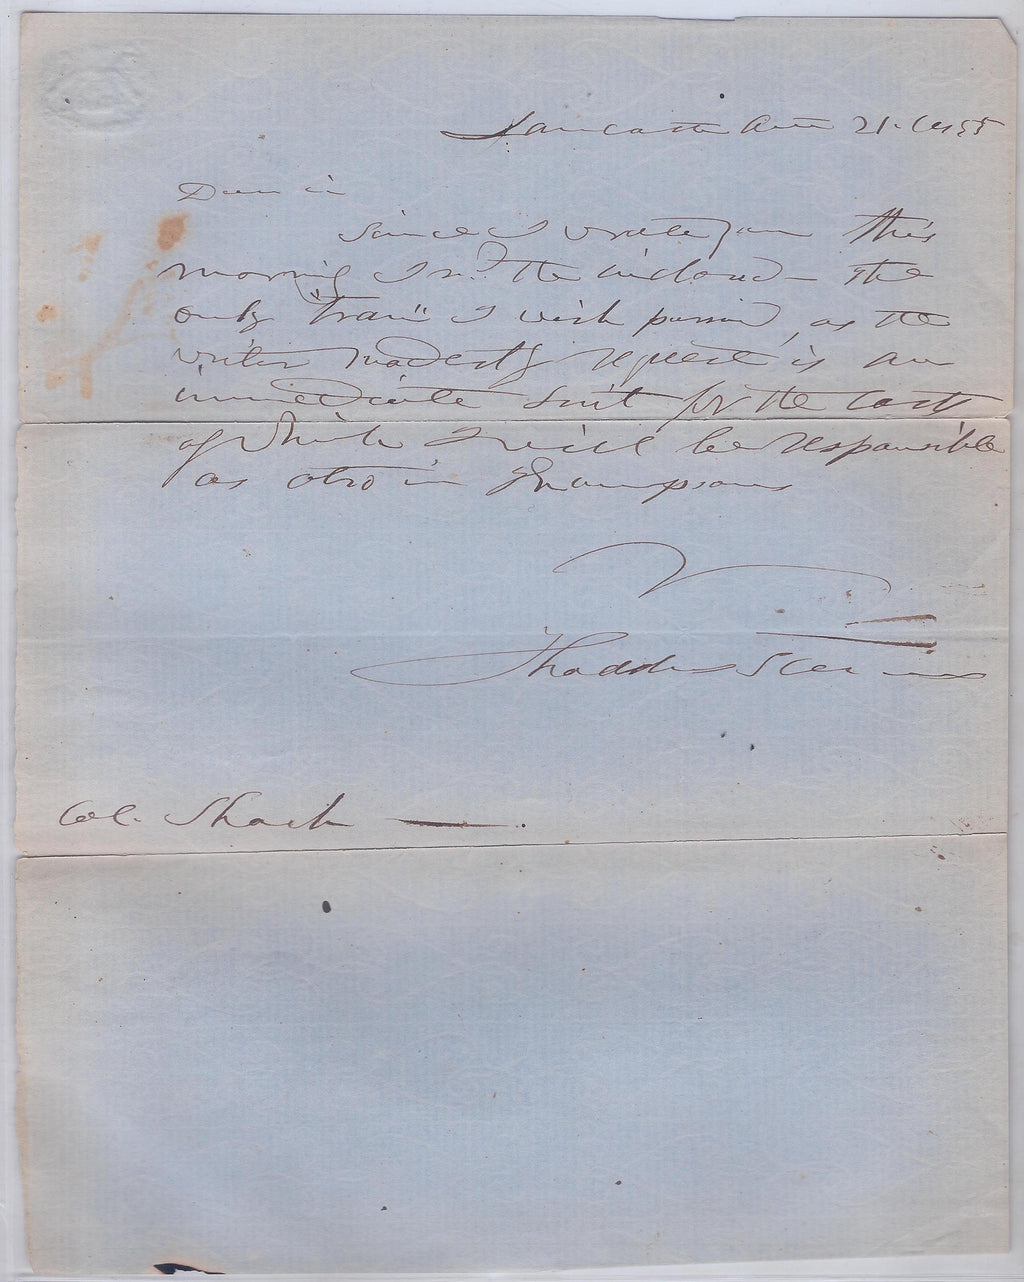 Lancaster Aug 21. 1855
Dear Sir
Since I wrote you this
morning I recd the inclosed – the
only I wish pursued, as the
writer modestly request is an
immediate suit for the costs
of which I will be responsible
as also in Thompsons
Thaddeus Stevens
Col. Shock